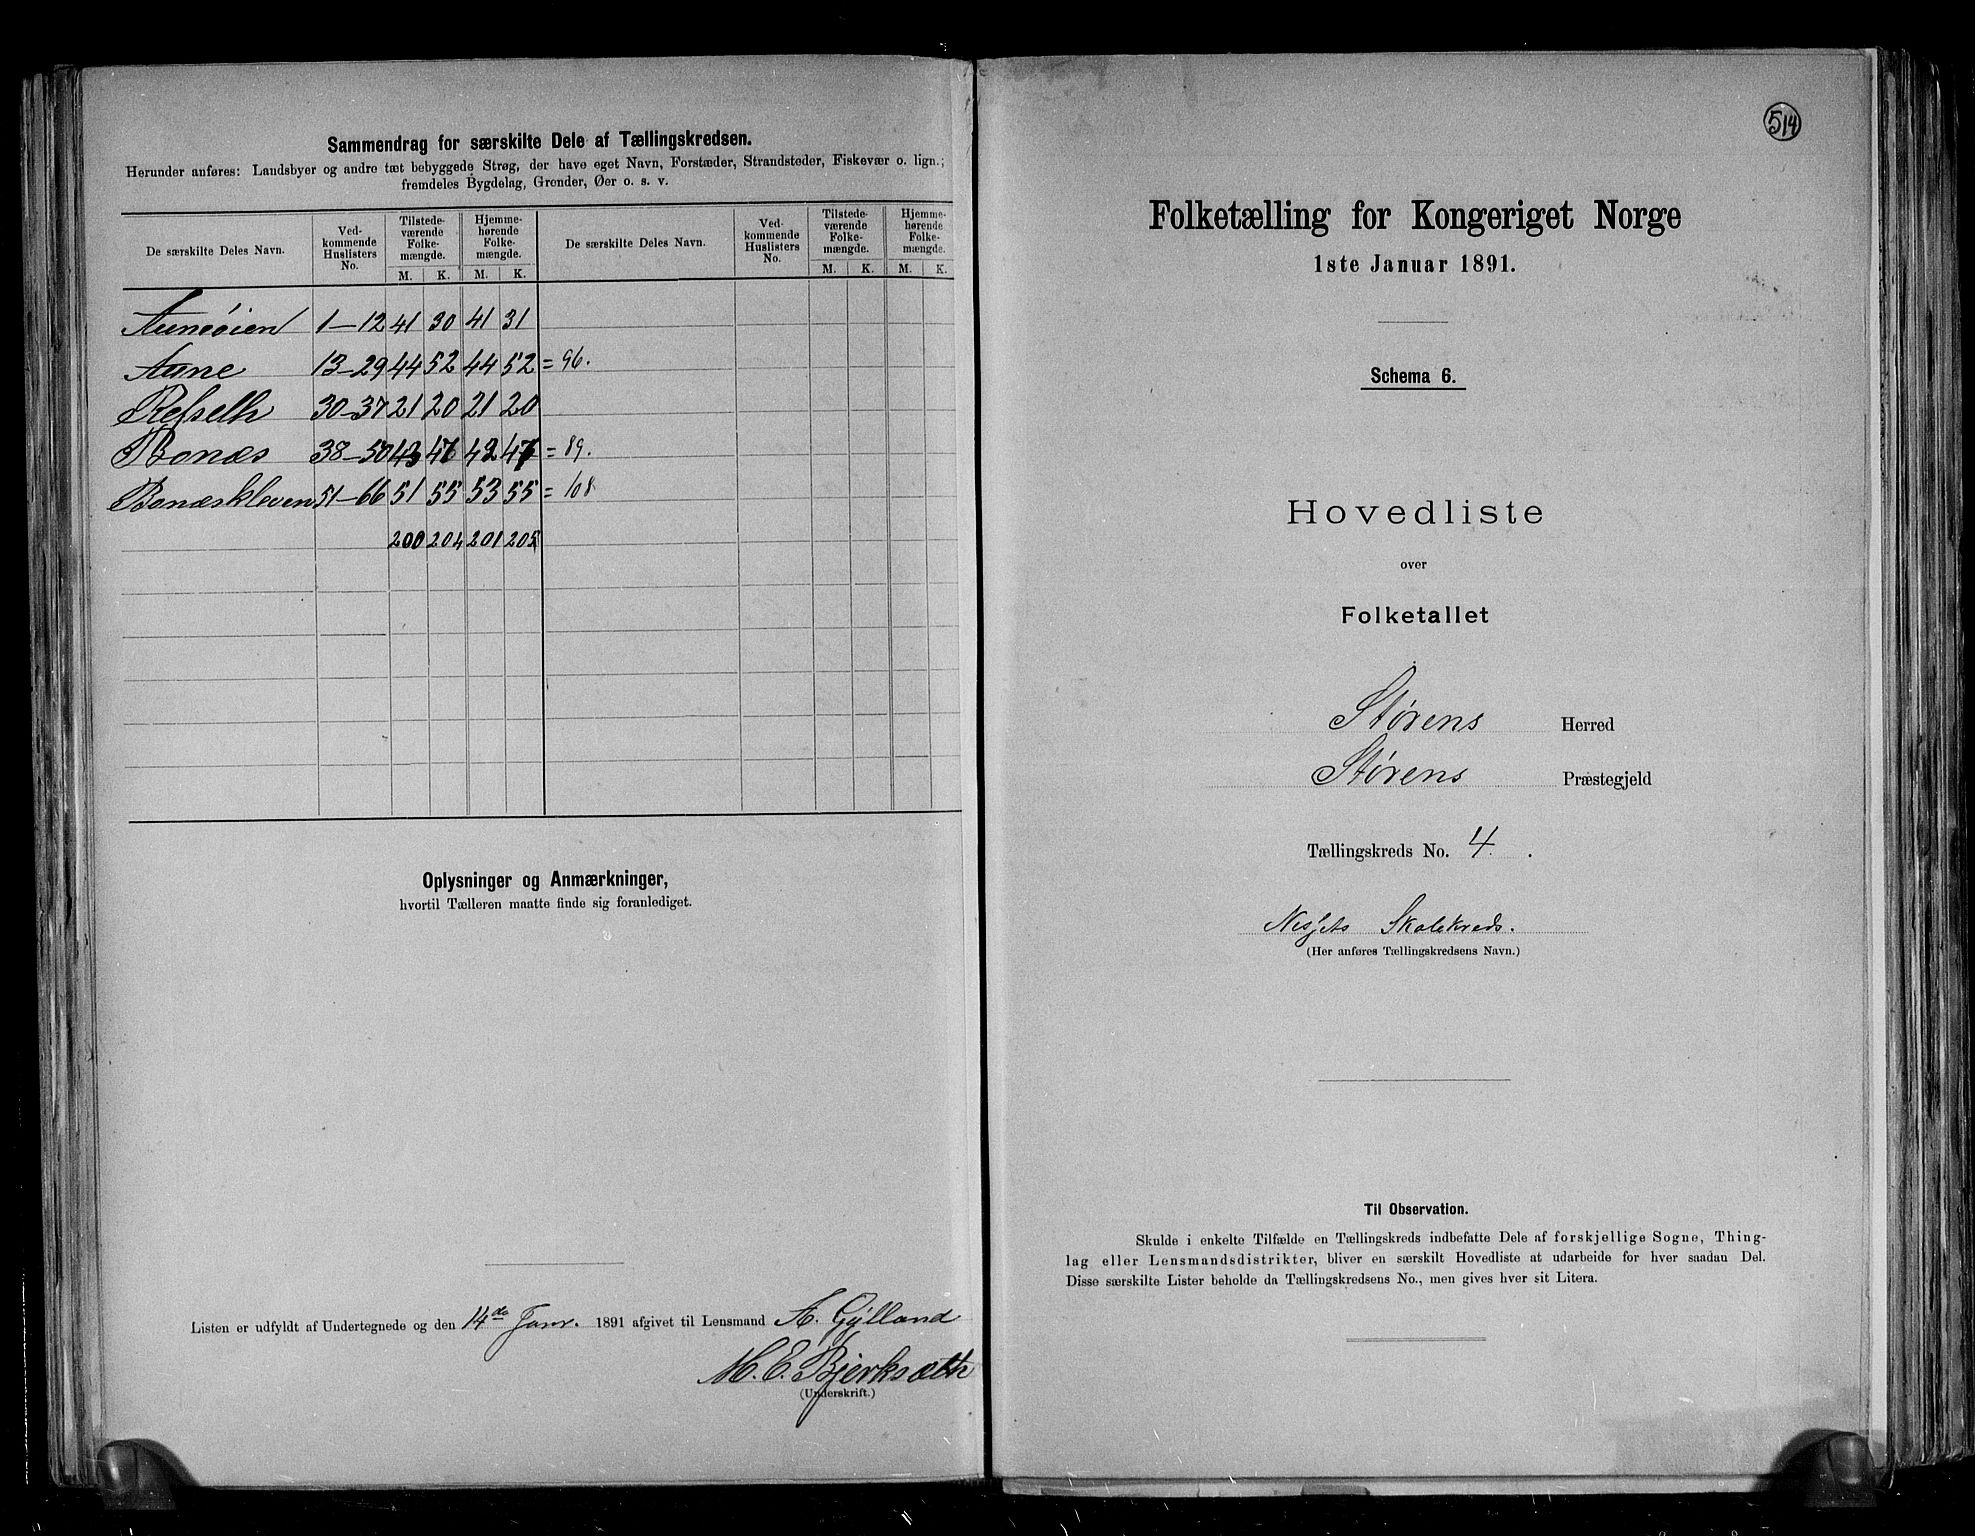 Sammendrag for særskilte Dele af Tællingskredsen.
Herunder anføres: Landsbyer og andre tæt bebyggede Strøg, der have eget Navn, Forstæder, Strandsteder, Fiskevær o. lign.;
fremdeles Bygdelag, Grender, Øer o. s. v.
De særskilte Deles Navn. Ved-kommende Huslisters No. Tilstede-værende Folke-mængde. Hjemme-hørende Folke-mængde. De særskilte Deles Navn. Ved-kommende Huslisters No. Tilstede-værende Folke-mængde. Hjemme-hørende Folke-mængde.
M. K. M. K. M. K. M. K.
Aunøien 1–12 41 30 41 31
Aune 13–29 44 52 44 52 = 96.
Refseth 30–37 21 20 21 20
Bonæs 38–50 43 47 42 47 = 89.
Bonæskleven 51–66 51 55 53 55 = 108
200 204 201 205
Oplysninger og Anmærkninger,
hvortil Tælleren maatte finde sig foranlediget.
Listen er udfyldt af Undertegnede og den 14de Janr. 1891 afgivet til Lensmand A. Gylland
M. E. Bjerksæth
(Underskrift.)
514
Folketælling for Kongeriget Norge
1ste Januar 1891.
Schema 6.
Hovedliste
over
Folketallet
Størens Herred
Størens Præstegjeld
Tællingskreds No. 4.
Skolekreds.
(Her anføres Tællingskredsens Navn.)
Til Observation.
Skulde i enkelte Tilfælde en Tællingskreds indbefatte Dele af forskjellige Sogne, Thing-
lag eller Lensmandsdistrikter, bliver en særskilt Hovedliste at udarbeide for hver saadan Del.
Disse særskilte Lister beholde da Tællingskredsens No., men gives hver sit Litera.